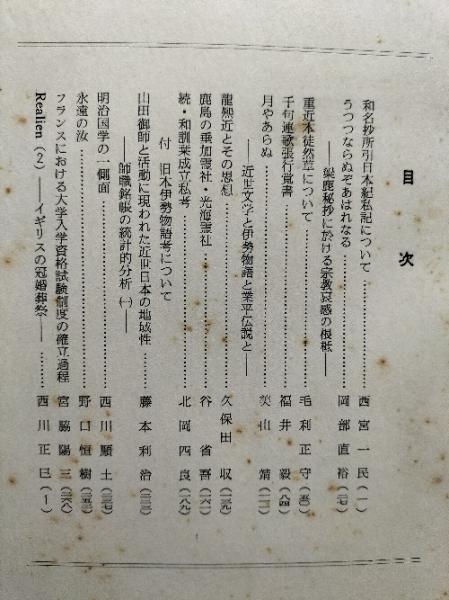 目次
和名抄所引日本紀私記について……西宮一民(一)
うつつならぬぞあはれなる……岡部直裕(一七)
――梁塵秘抄に於ける宗教哀感の根柢――
重近本徒然草について……毛利正守(五〇)
千句連歌張行覚書……福井毅(八四)
月やあらぬ……美山靖(一一一)
――近世文学と伊勢物語と業平伝説と――
龍熈近とその思想……久保田収(一三九)
鹿島の乗加霊社・光海霊社……谷省吾(一六一)
続・和訓栞成立私考……北岡四良(一八九)
付 旧本伊勢物語考について
山田御師と活動に現われた近世日本の地域性……藤本利治(二一三)
――師職銘帳の統計的分析(一)――
明治国学の一側面……西川順土(二三七)
永遠の汝……野口恒樹(二五三)
フランスにおける大学入学資格試験制度の確立過程……宮脇陽三(二六八)
Realien(2)――イギリスの冠婚葬祭――……西川正巳(1)